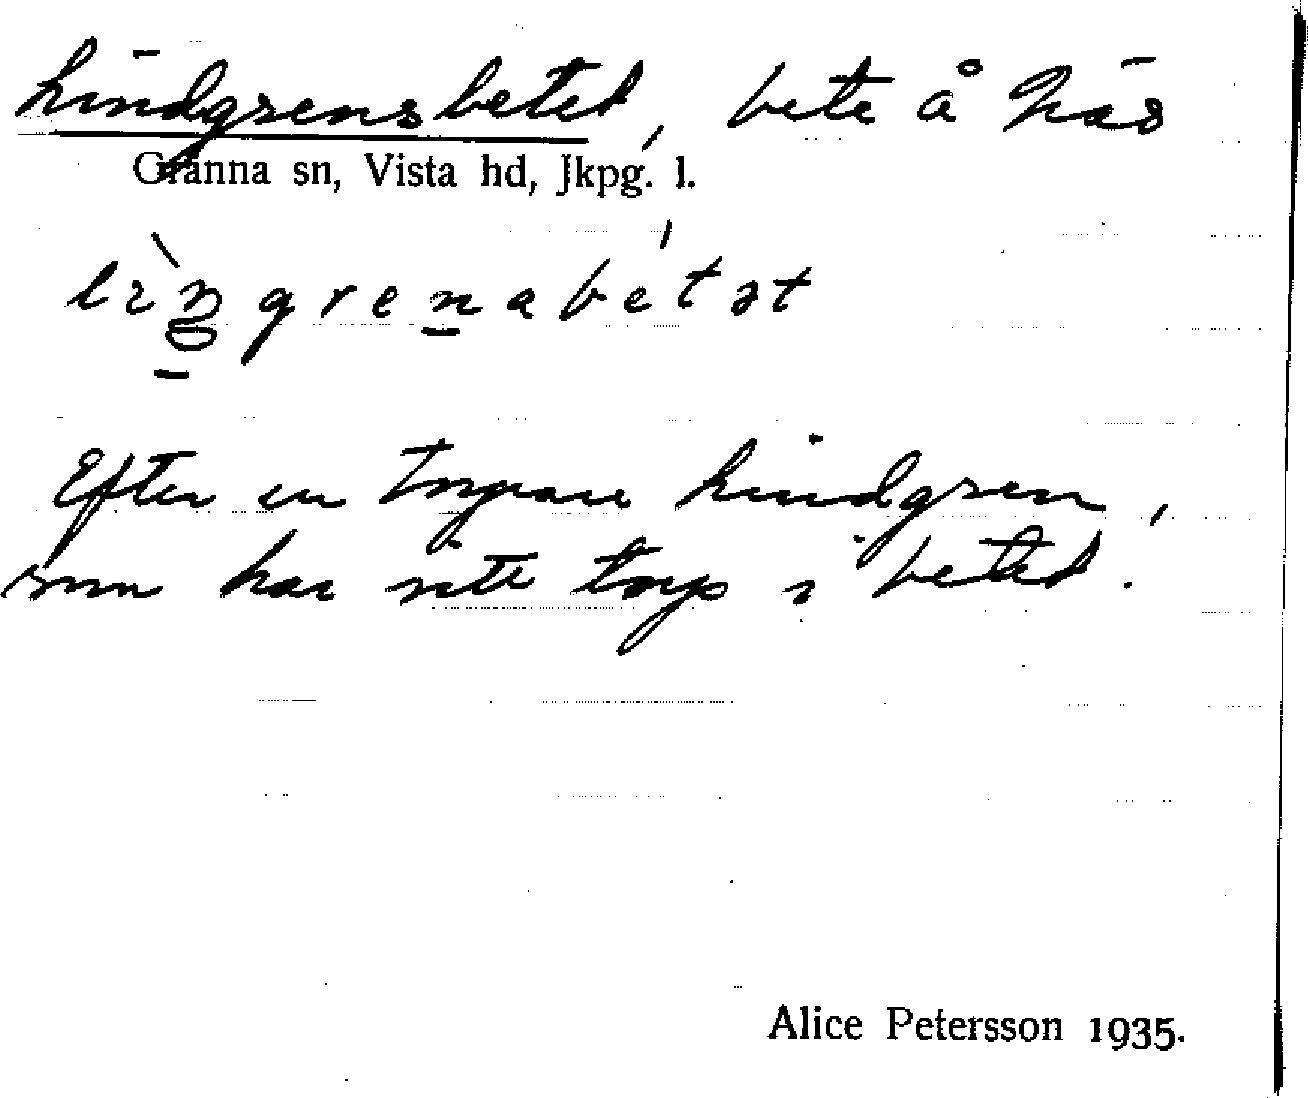 Lindgrensbetet, bete å Näs
Gränna sn, Vista hd, Jkpg. l.
lìŋgrenabétət
Efter en torpare Lindgren,
som har sitt torp i betet.
Alice Petersson 1935.